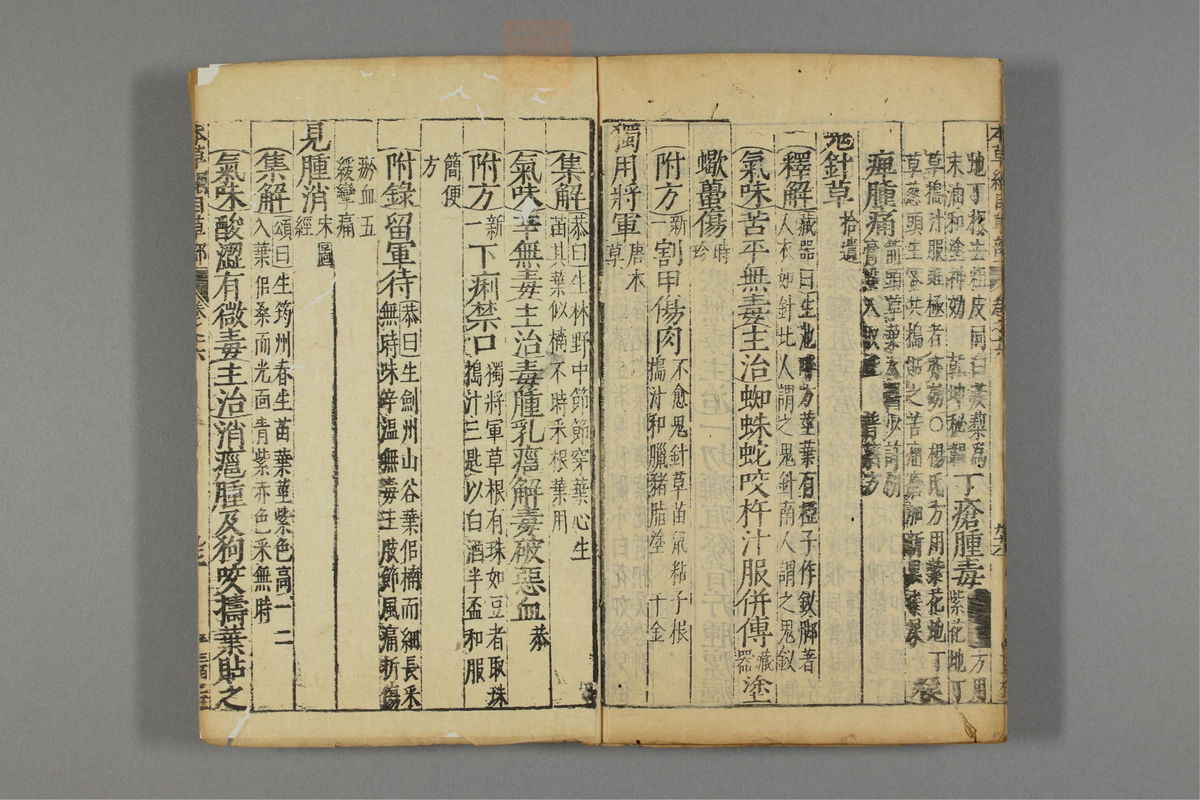 地丁根去粗皮同白蒺藜為
末油和塗神効
丁瘡腫毒
紫花地丁
草搗汁服雖極者亦効○楊氏方用紫花地丁
草葱頭生蜜共搗
痺腫痛
箭頭草葉
普濟方
鬼針草
拾遺
釋解
藏器曰生池畔方莖葉有椏子作釵脚著
人衣如針北人謂之鬼針南人謂之鬼釵
氣味苦平無毒主治蜘蛛蛇咬杵汁服併傅
藏器
塗
蠍蠆傷
時珍
附方
新一
割甲傷肉
不愈鬼針草苗鼠粘子根
搗汁和臘豬脂塗 千金
獨用將軍
唐本草
集解
恭曰生林野中節節穿葉心生
苗其葉似楠不時采根葉用
氣味辛無毒主治毒腫乳癰解毒破惡血
恭
附方
新一
下痢禁口
獨將軍草根有珠如豆者取珠
搗汁三匙以白酒半盃和服
簡便方
附錄
留軍待
恭曰生劍州山谷葉似楠而細長采
無時味辛溫無毒主肢節風痛折傷
瘀血五
緩攣痛
見腫消
宋圖經
集解
頌曰生筠州春生苗葉莖紫色高一二
入葉似桑而光面青紫赤色采無時
氣味酸澀有微毒主治消癰腫及狗咬擣葉貼之
本草綱目草部
卷之十六